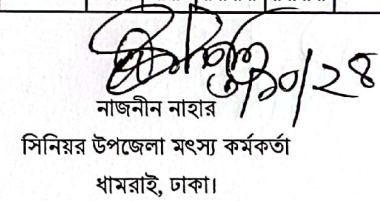 ৩/১০/২৪
নাজনীন নাহার
সিনিয়র উপজেলা মৎস্য কর্মকর্তা
ধামরাই, ঢাকা।